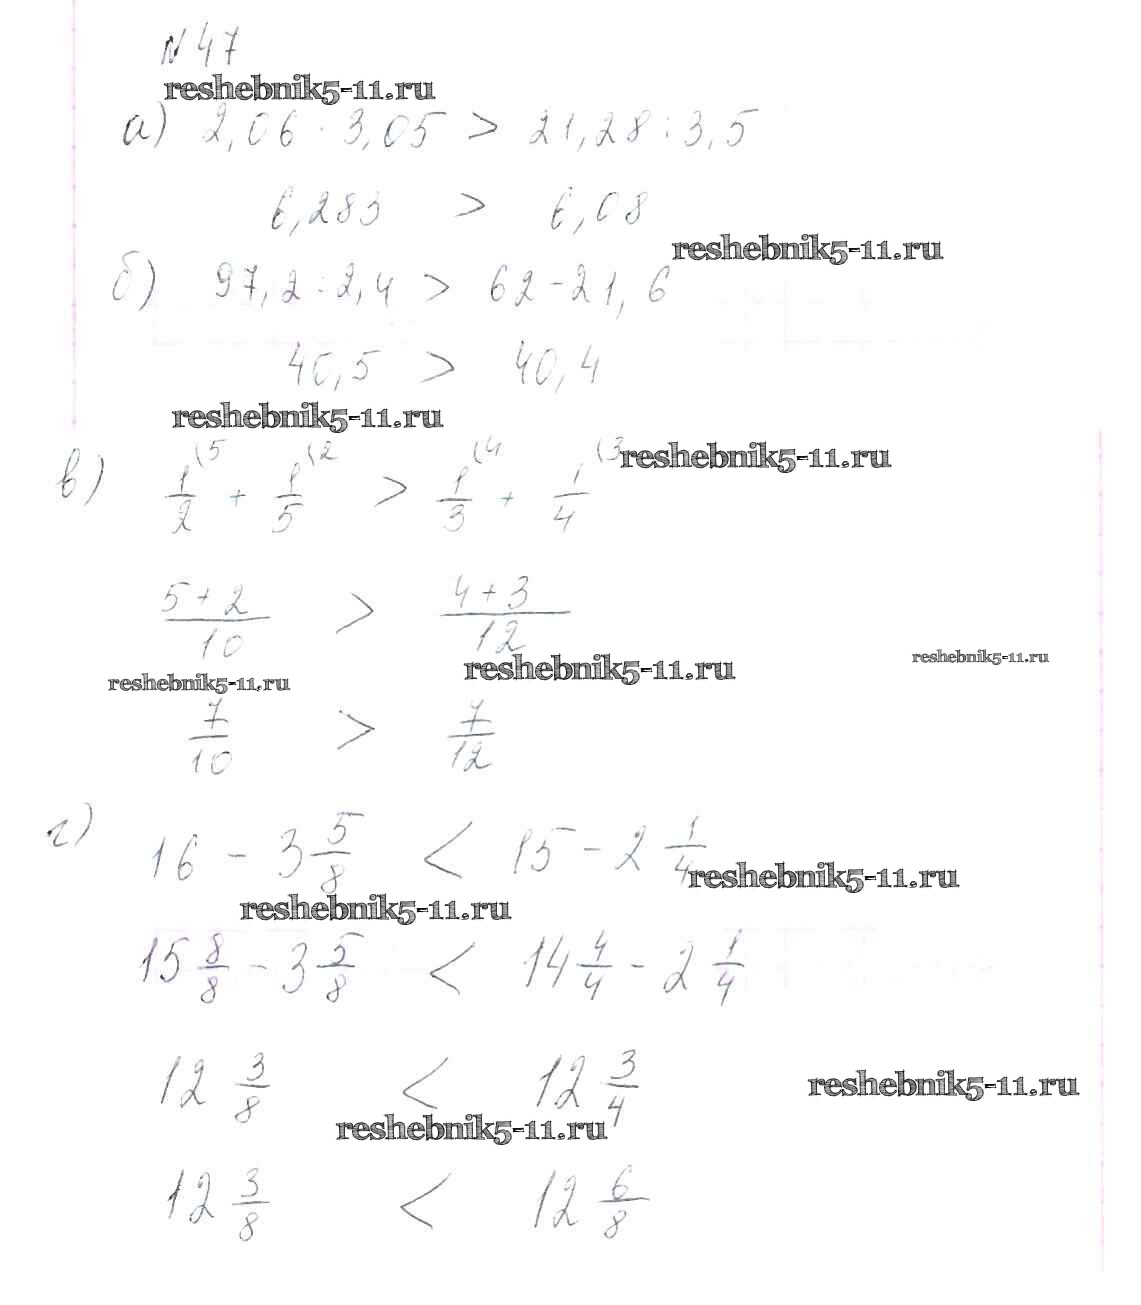 N 47
reshebnik5-11.ru
а) 2,06 · 3,05 > 21,28 : 3,5
6,283 > 6,08
reshebnik5-11.ru
б) 97,2 : 2,4 > 62 - 21,6
40,5 > 40,4
reshebnik5-11.ru
reshebnik5-11.ru
в) 1/2 (5 + 1/5 (2 > 1/3 (4 + 1/4 (3
5+2/10 > 4+3/12
reshebnik5-11.ru
reshebnik5-11.ru
reshebnik5-11.ru
7/10 > 7/12
г) 16 - 3 5/8 < 15 - 2 1/4
reshebnik5-11.ru
reshebnik5-11.ru
15 8/8 - 3 5/8 < 14 4/4 - 2 1/4
12 3/8 < 12 3/4
reshebnik5-11.ru
reshebnik5-11.ru
12 3/8 < 12 6/8